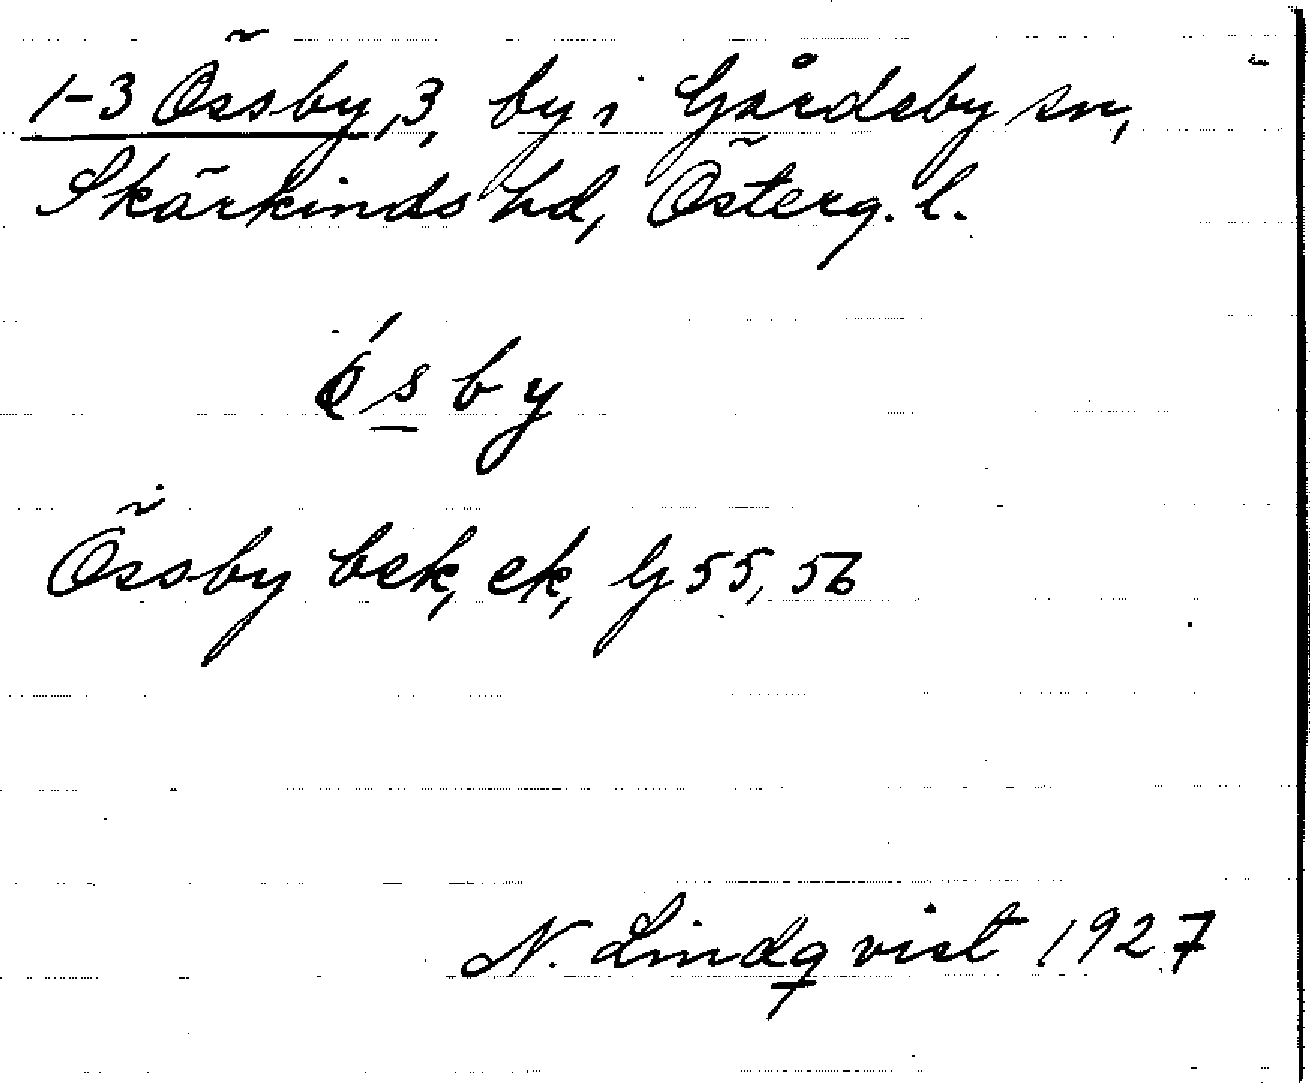 1-3 Össby, 3, by i Gårdeby sn,
Skärkinds hd, Österg. l.
ǿsby
Össby bek, ek, G 55, 56
N. Lindqvist 1927